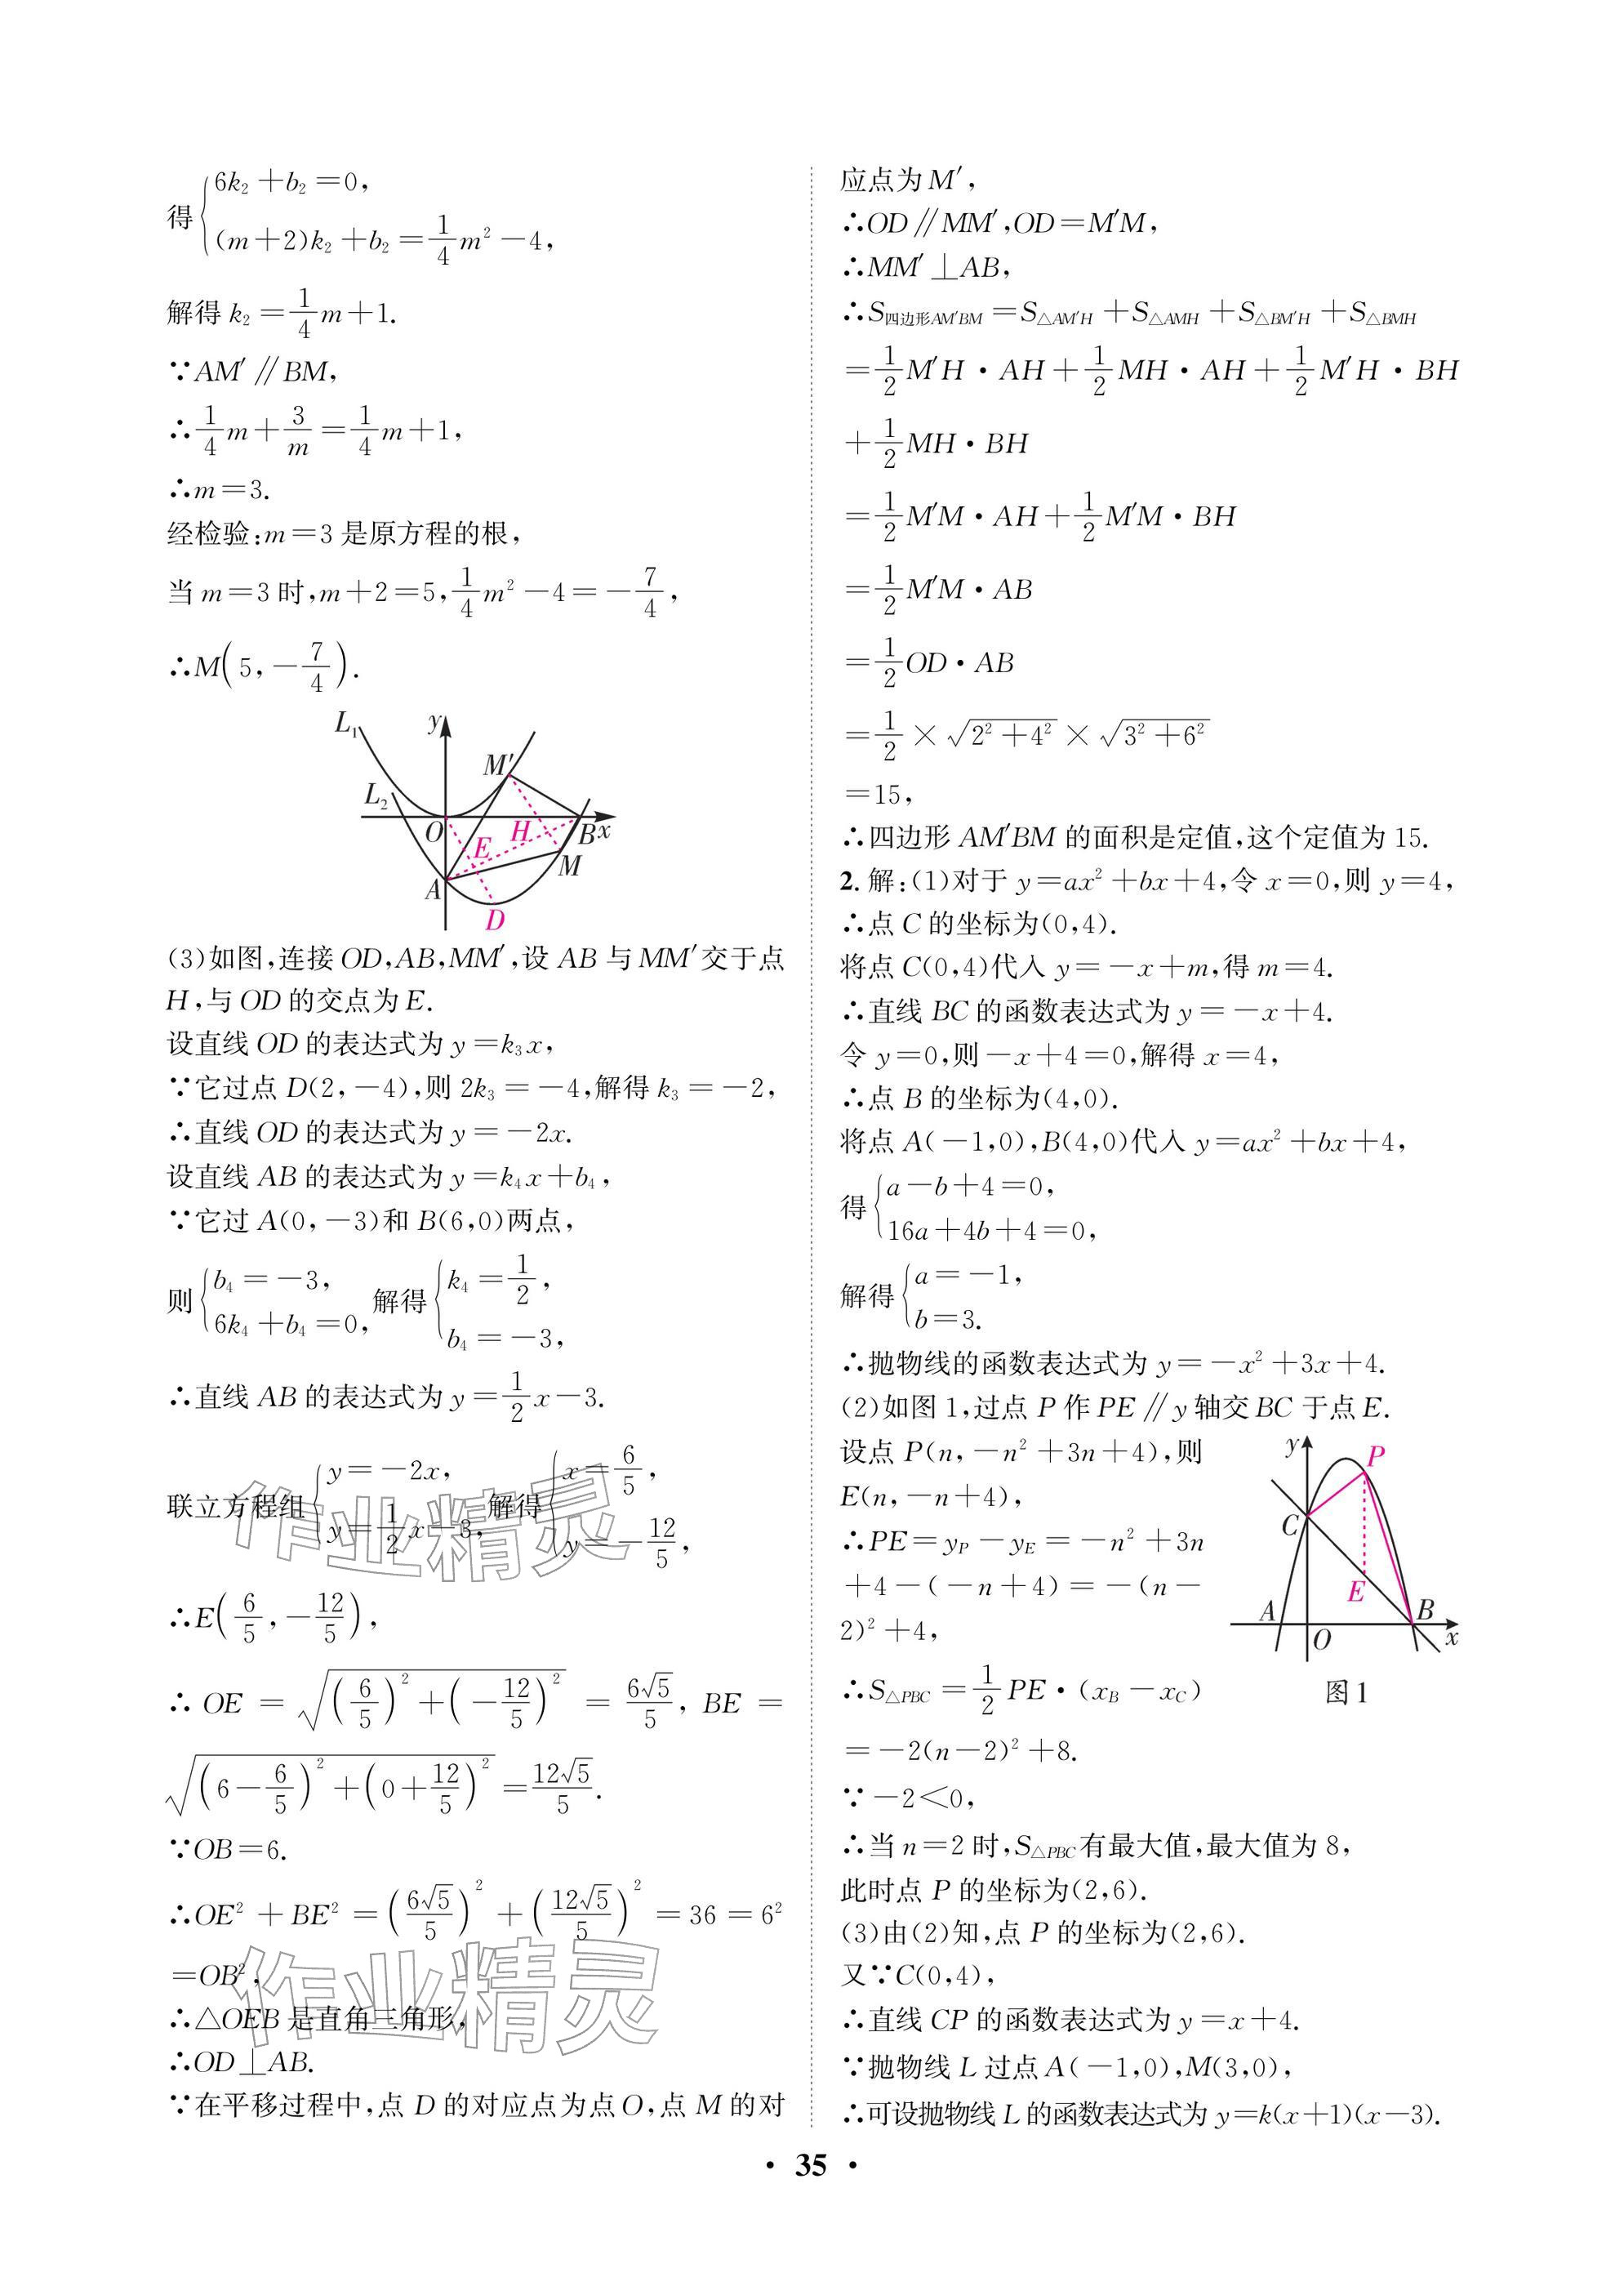 得{6k₂+b₂=0,
(m+2)k₂+b₂=1/4m²-4,
解得 k₂=1/4m+1.
∵AM′∥BM,
∴1/4m+3/m=1/4m+1,
∴m=3.
经检验:m=3 是原方程的根,
当 m=3 时,m+2=5,1/4m²-4=-7/4,
∴M(5,-7/4).
L₁
y
M′
L₂
O
E
H
B
x
A
M
D
(3)如图,连接 OD,AB,MM′,设 AB 与 MM′交于点
H,与 OD 的交点为 E.
设直线 OD 的表达式为 y=k₃x,
∵它过点 D(2,-4),则 2k₃=-4,解得 k₃=-2,
∴直线 OD 的表达式为 y=-2x.
设直线 AB 的表达式为 y=k₄x+b₄,
∵它过 A(0,-3)和 B(6,0)两点,
则{b₄=-3, 6k₄+b₄=0, 解得{k₄=1/2, b₄=-3,
∴直线 AB 的表达式为 y=1/2x-3.
联立方程组{y=-2x, y=1/2x-3, 解得{x=6/5, y=-12/5,
∴E(6/5,-12/5),
∴ OE = √((6/5)²+(-12/5)²) = 6√5/5, BE =
√((6-6/5)²+(0+12/5)²)=12√5/5.
∵OB=6.
∴OE²+BE²=(6√5/5)²+(12√5/5)²=36=6²
=OB²,
∴△OEB 是直角三角形,
∴OD⊥AB.
∵在平移过程中,点 D 的对应点为点 O,点 M 的对
应点为 M′,
∴OD∥MM′,OD=M′M,
∴MM′⊥AB,
∴S四边形AM′BM=S△AM′H+S△AMH+S△BM′H+S△BMH
=1/2M′H·AH+1/2MH·AH+1/2M′H·BH
+1/2MH·BH
=1/2M′M·AH+1/2M′M·BH
=1/2M′M·AB
=1/2OD·AB
=1/2×√(2²+4²)×√(3²+6²)
=15,
∴四边形 AM′BM 的面积是定值,这个定值为 15.
2. 解:(1)对于 y=ax²+bx+4,令 x=0,则 y=4,
∴点 C 的坐标为(0,4).
将点 C(0,4)代入 y=-x+m,得 m=4.
∴直线 BC 的函数表达式为 y=-x+4.
令 y=0,则-x+4=0,解得 x=4,
∴点 B 的坐标为(4,0).
将点 A(-1,0),B(4,0)代入 y=ax²+bx+4,
得{a-b+4=0,
16a+4b+4=0,
解得{a=-1,
b=3.
∴抛物线的函数表达式为 y=-x²+3x+4.
(2)如图 1,过点 P 作 PE∥y 轴交 BC 于点 E.
设点 P(n,-n²+3n+4),则
E(n,-n+4),
∴PE=yP-yE=-n²+3n
+4-(-n+4)=-(n-
2)²+4,
∴S△PBC=1/2PE·(xB-xC)
=-2(n-2)²+8.
y
P
C
E
A
B
O
x
图1
∵-2<0,
∴当 n=2 时,S△PBC有最大值,最大值为 8,
此时点 P 的坐标为(2,6).
(3)由(2)知,点 P 的坐标为(2,6).
又∵C(0,4),
∴直线 CP 的函数表达式为 y=x+4.
∵抛物线 L 过点 A(-1,0),M(3,0),
∴可设抛物线 L 的函数表达式为 y=k(x+1)(x-3).
作业精灵
作业精灵
· 35 ·